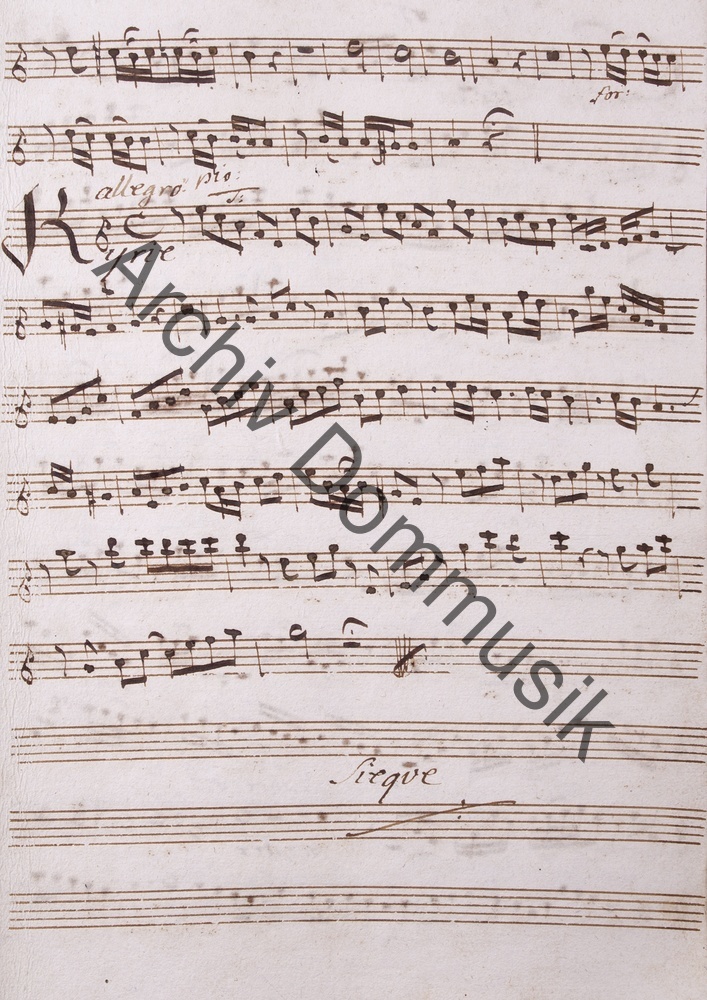 for:
allegro. pio:
Kyrie
Sieque
Archiv Dommusik